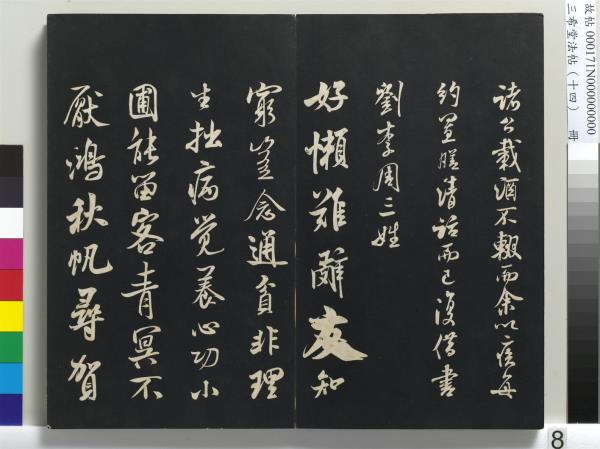 故帖 000171N000000000
三希堂法帖（十四） 冊
諸公載酒不輟而余以疾每
約置膳清話而已復借書
劉李周三姓
好懶難辭友知
窮豈念通貧非理
生拙病覚養心功小
圃能留客青冥不
厭鴻秋帆尋賀
8